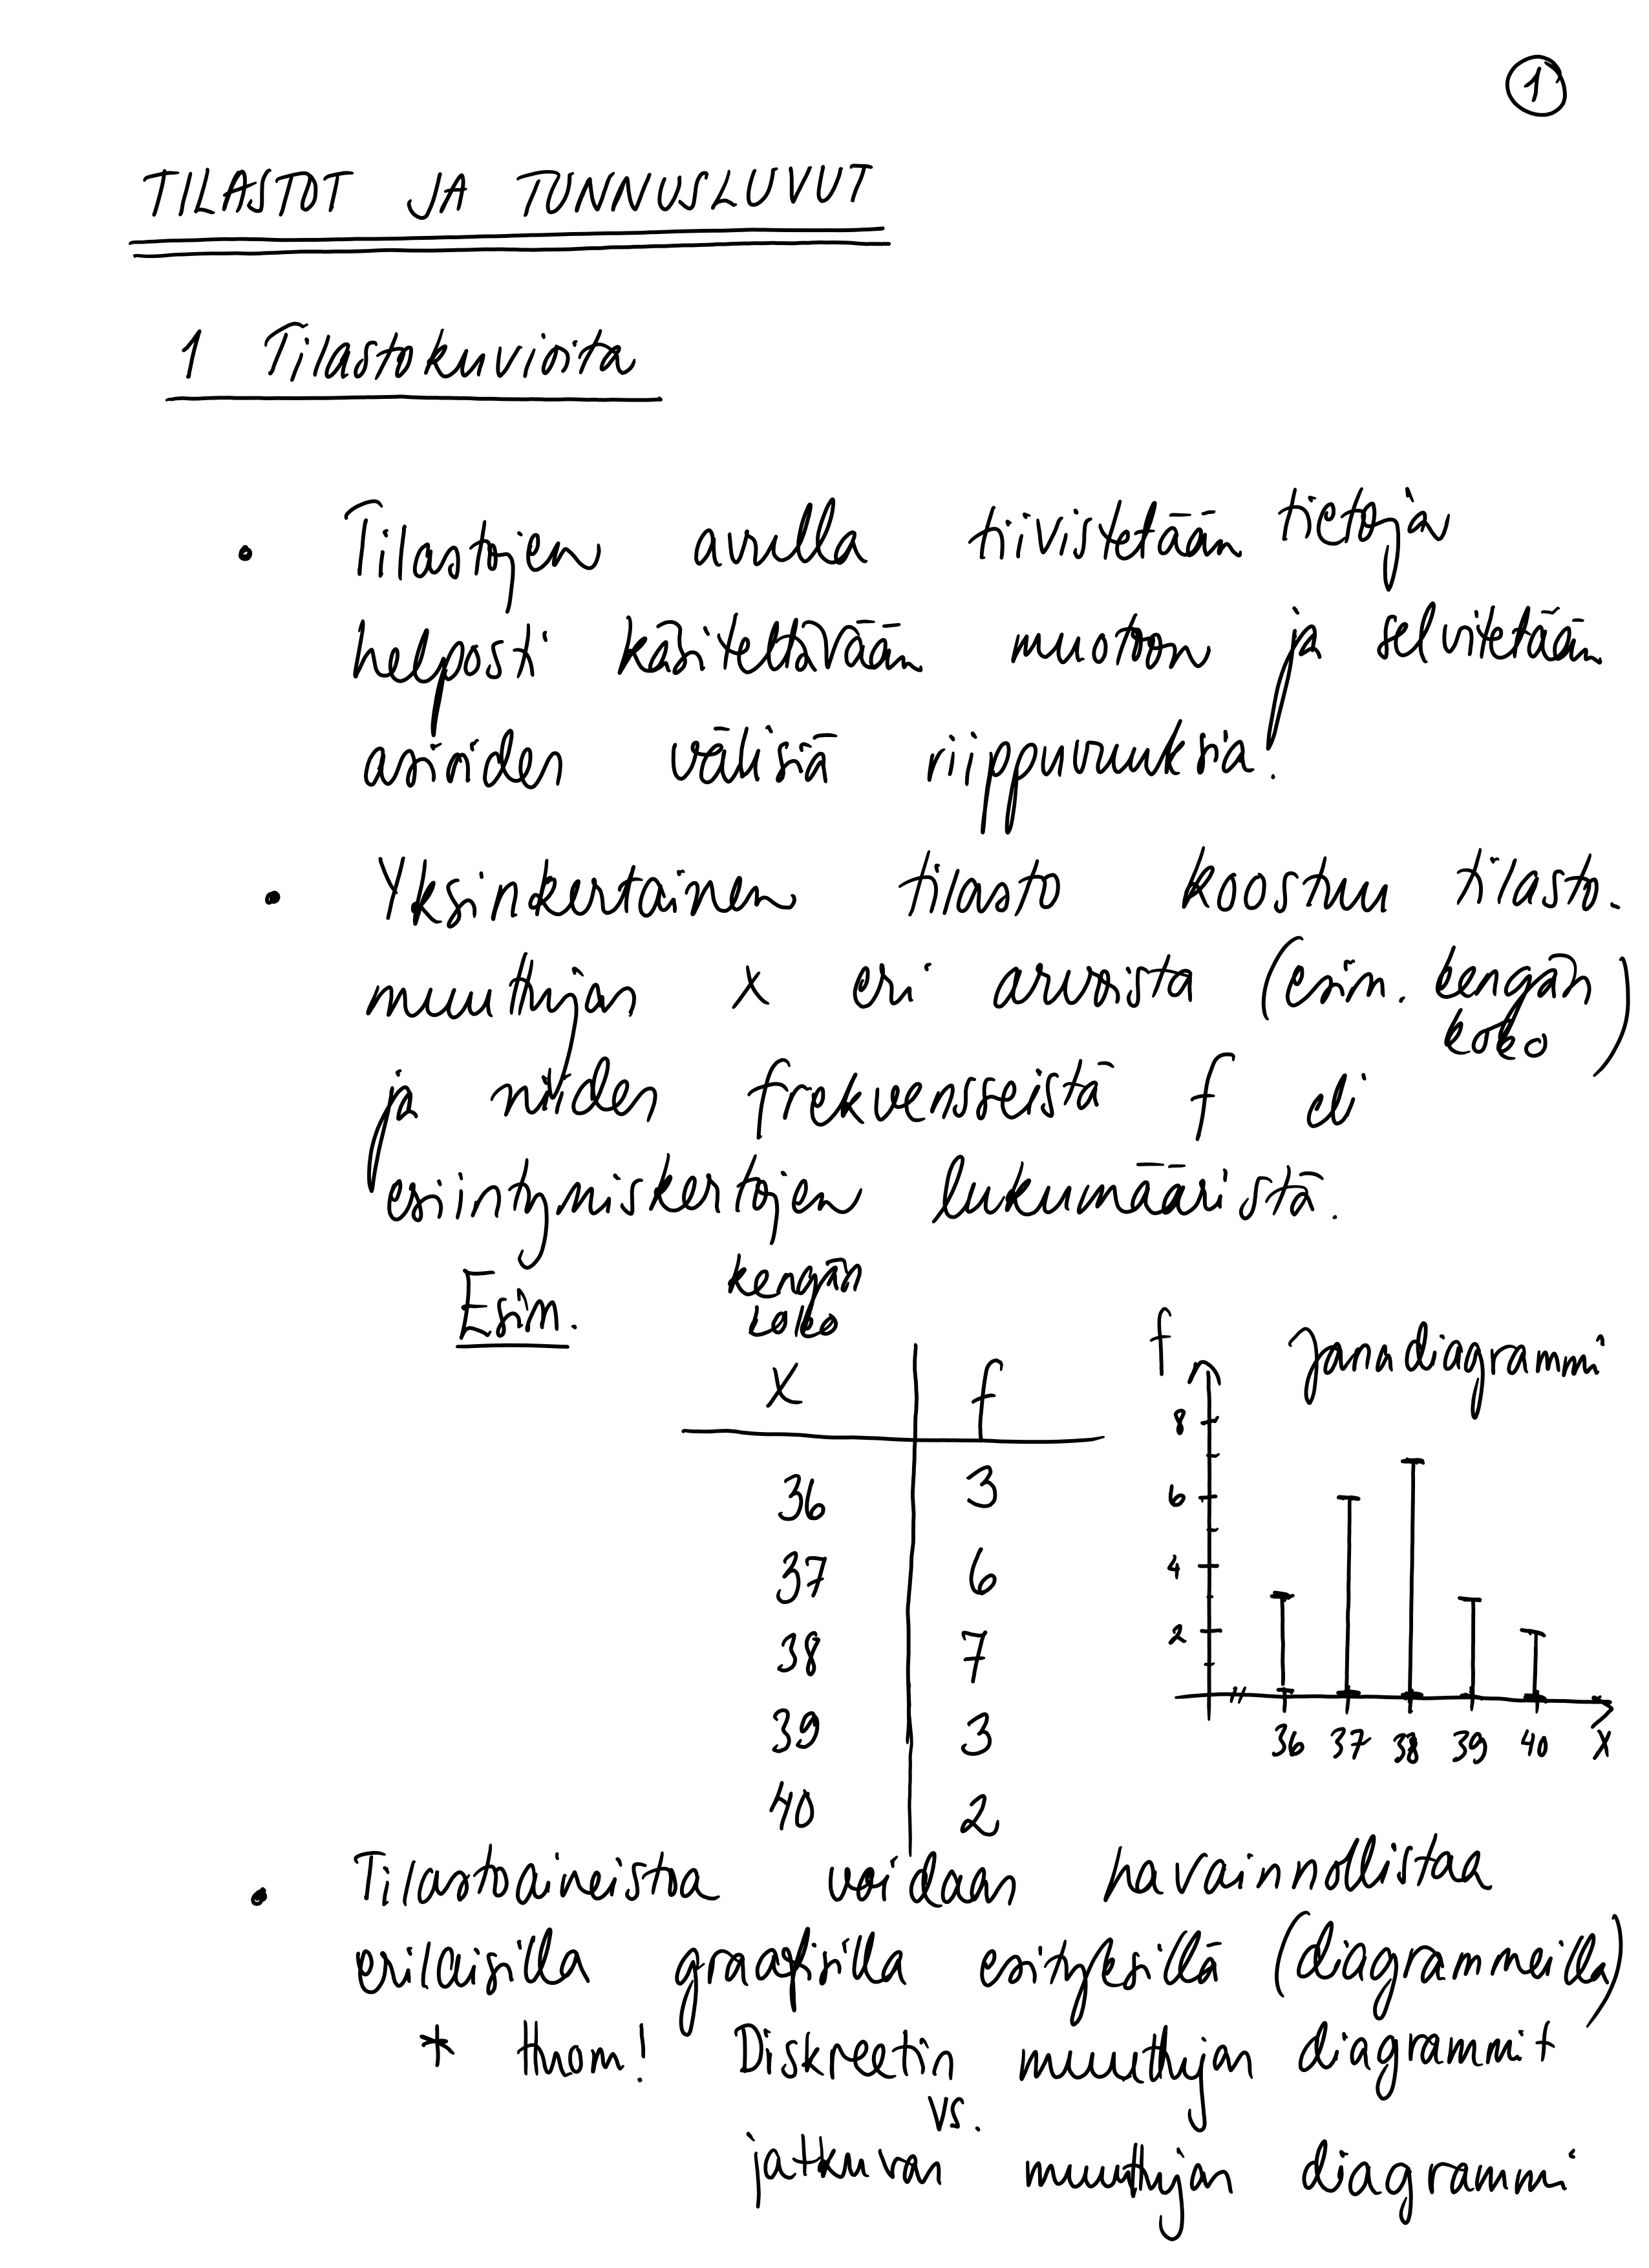 1
TILASTOT JA TUNNUSLUVUT
1 Tilastokuvioita
• Tilastojen avulla tiivistetään tietoja
helposti käsiteltävään muotoon ja selvitetään
asioiden välisiä riippuvuuksia.
• Yksinkertainen tilasto koostuu tilasto-
muuttujan x eri arvoista (esim. kengän
koko)
ja niiden frekvensseistä f eli
esiintymiskertojen lukumääristä.
Esim.
kengän
koko
x f
36 3
37 6
38 7
39 3
40 2
f Janadiagrammi
8
6
4
2
36 37 38 39 40 x
• Tilastoaineistoa voidaan havainnollistaa
erilaisilla graafisilla esityksillä (diagrammeilla)
* Huom! Diskreetin muuttujan diagrammit
vs.
jatkuvan muuttujan diagrammi